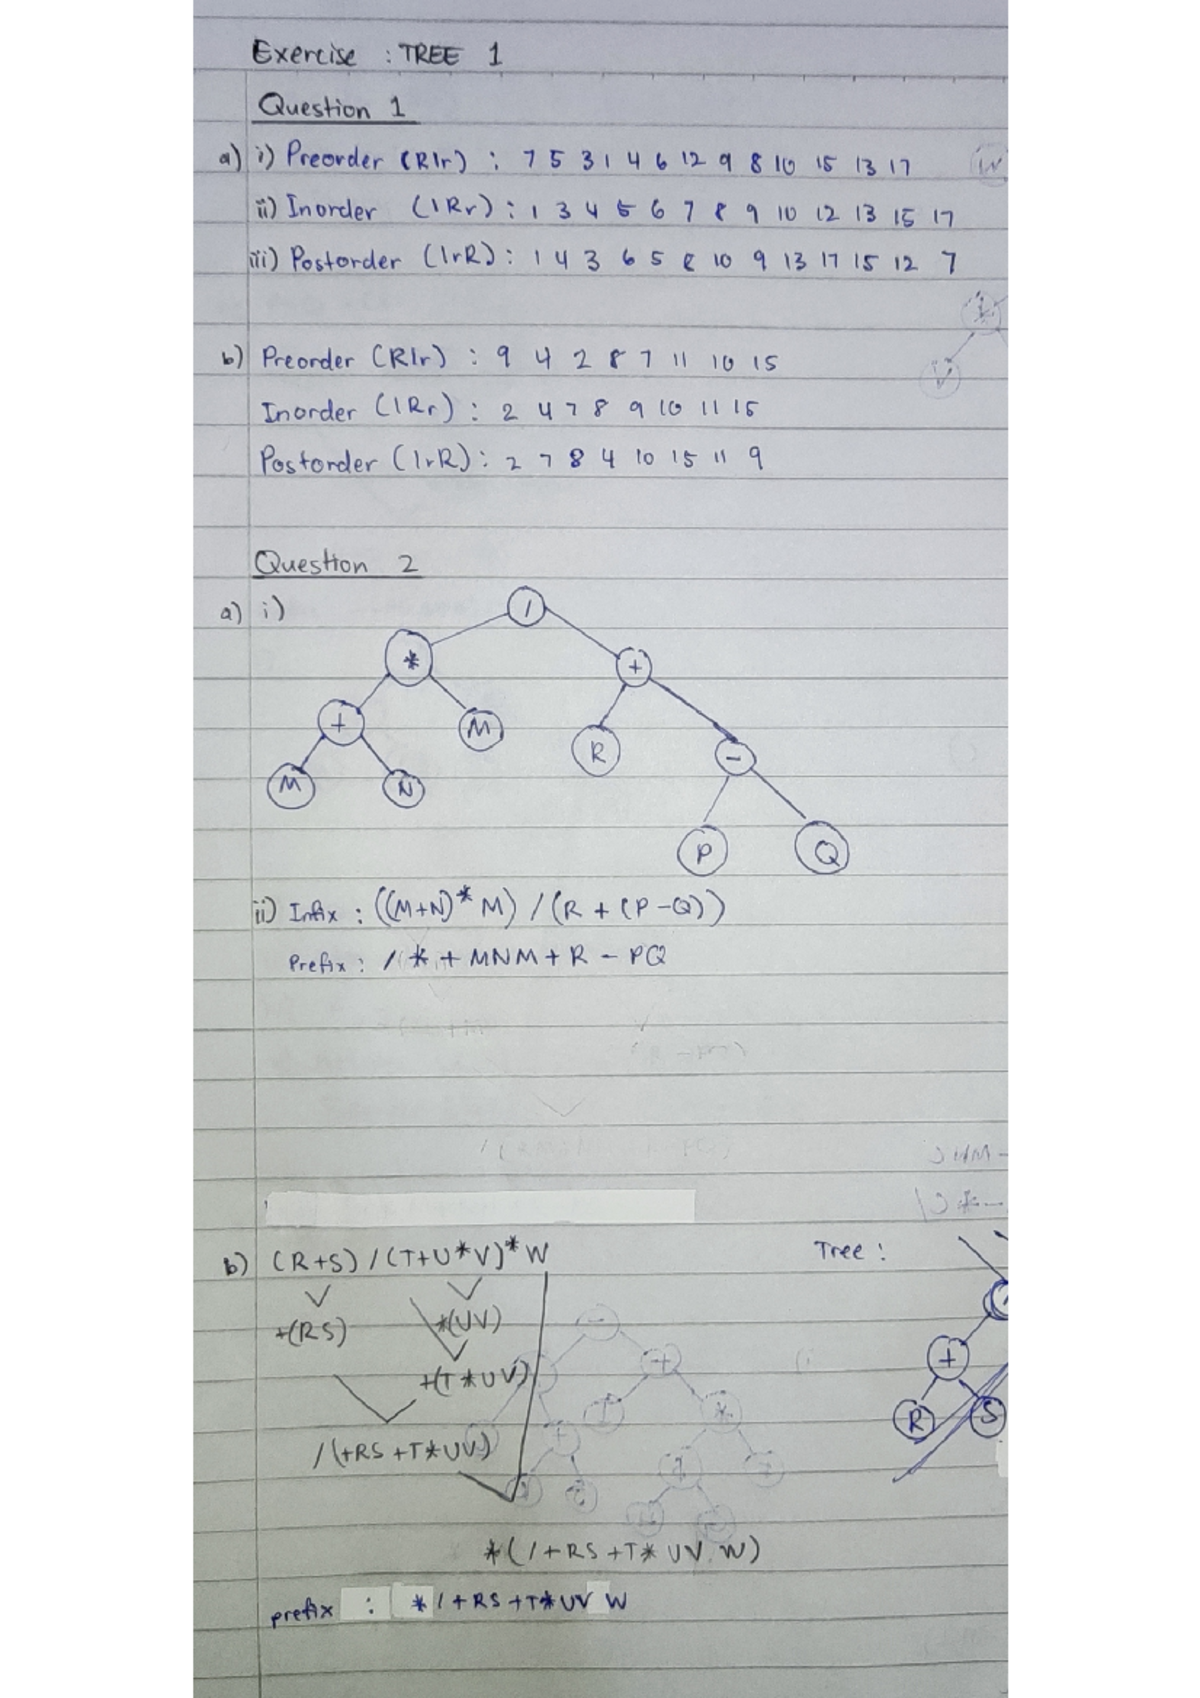 Exercise : TREE 1
Question 1
a) i) Preorder (Rlr) : 7 5 3 1 4 6 12 9 8 10 15 13 17
ii) Inorder (lRr) : 1 3 4 5 6 7 8 9 10 12 13 15 17
iii) Postorder (lrR) : 1 4 3 6 5 8 10 9 13 17 15 12 7
b) Preorder (Rlr) : 9 4 2 8 7 11 10 15
Inorder (lRr) : 2 4 7 8 9 10 11 15
Postorder (lrR) : 2 7 8 4 10 15 11 9
Question 2
a) i)
/
* +
+ M R -
M N
P Q
ii) Infix : ((M+N)* M) / (R + (P-Q))
Prefix : / * + MNM + R - PQ
b) (R+S) / (T+U*V)* W Tree :
+(RS) *(UV)
+(T*UV) +
R S
/(+RS+T*UV)
*(/+RS+T*UV W)
prefix : */+RS+T*UV W